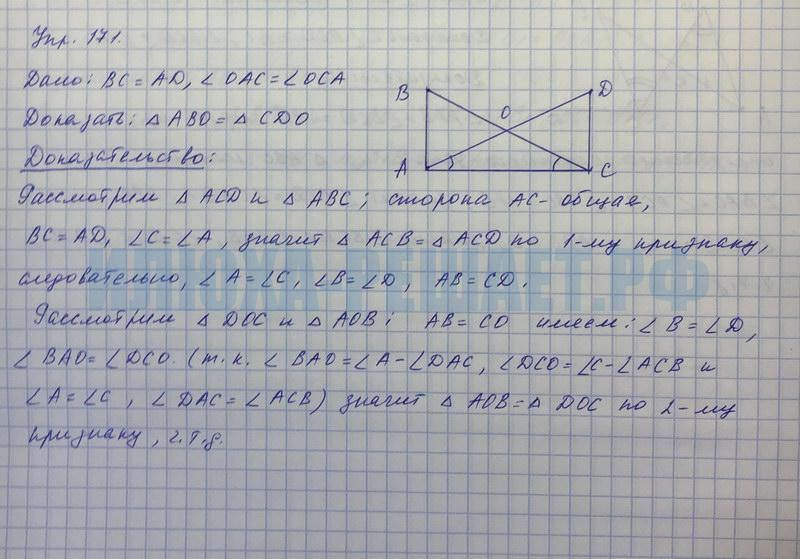 Упр. 171.
Дано: BC = AD, ∠ OAC = ∠ OCA
Доказать: △ ABO = △ CDO
Доказательство:
B
D
O
A
C
Рассмотрим △ ACD и △ ABC; сторона AC - общая,
BC = AD, ∠C = ∠A, значит △ ACB = △ ACD по 1-му признаку,
следовательно, ∠ A = ∠C, ∠B = ∠D, AB = CD.
Рассмотрим △ DOC и △ AOB: AB = CD имеем: ∠ B = ∠ D,
∠ BAO = ∠ DCO. (т.к. ∠ BAO = ∠A - ∠DAC, ∠DCO = ∠C - ∠ACB и
∠A = ∠C, ∠ DAC = ∠ ACB) значит △ AOB = △ DOC по 2-му
признаку, ч.т.д.
ИЛЮХА-РЕШАЕТ.РФ